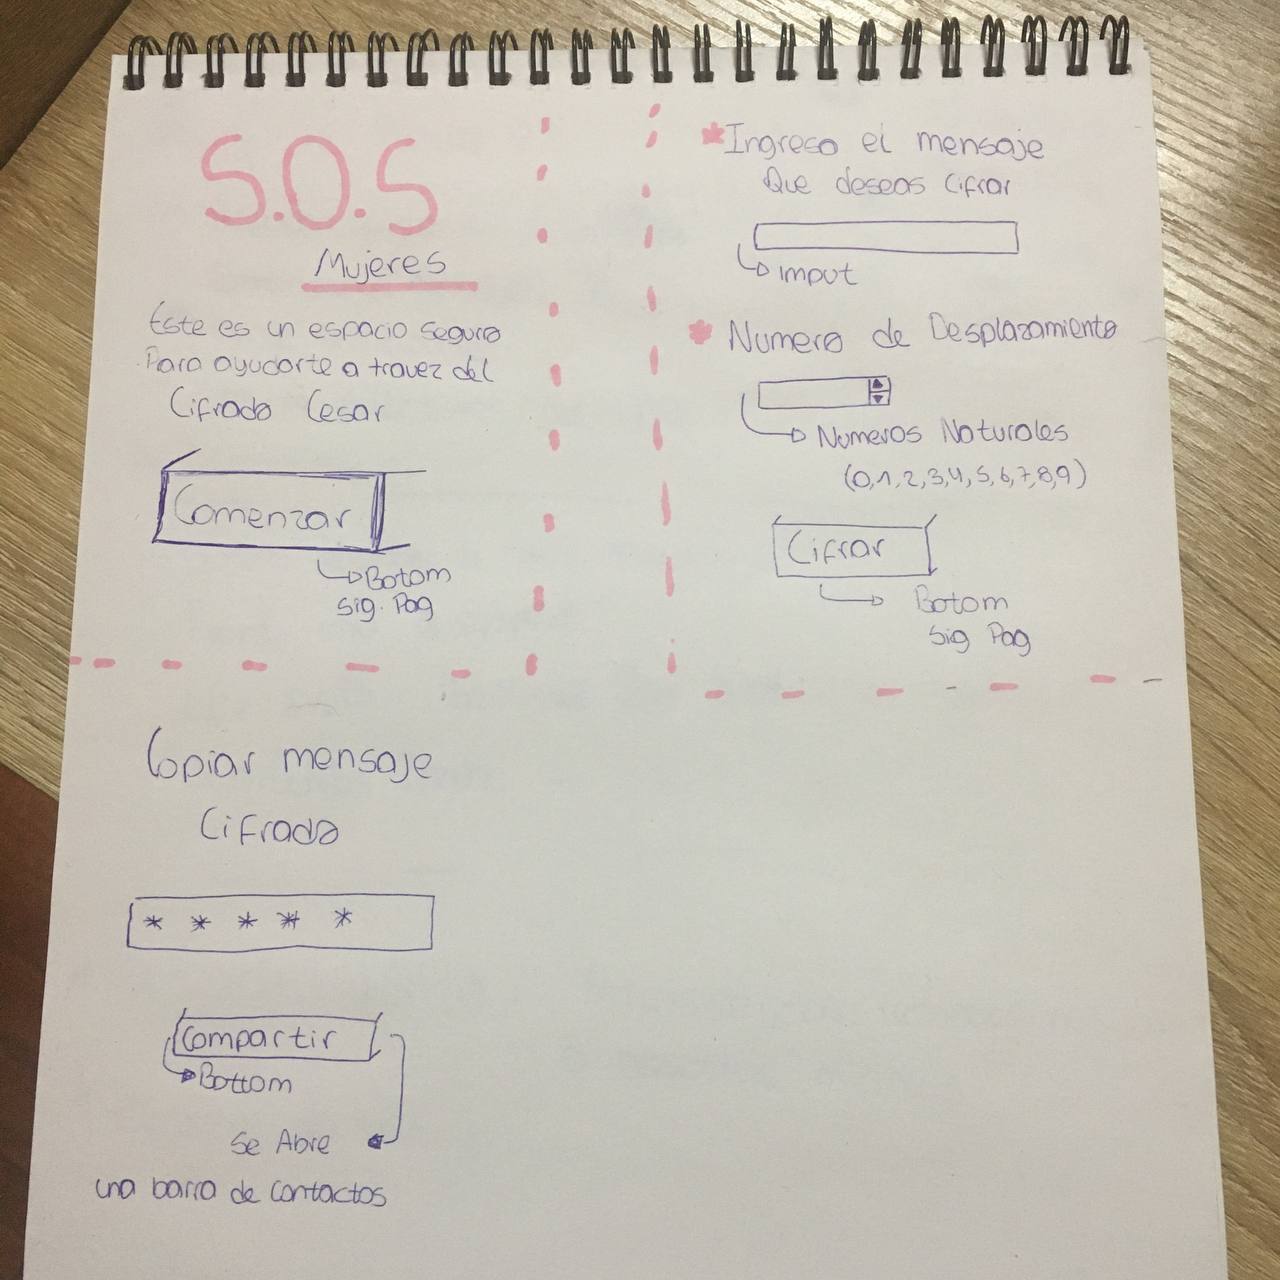 S.O.S
Mujeres
Este es un espacio seguro
Para ayudarte a travez del
Cifrado Cesar
Comenzar
Botom
Sig. Pag
* Ingresa el mensaje
Que deseas Cifrar
Imput
* Numero de Desplazamiento
Numeros Naturales
(0,1,2,3,4,5,6,7,8,9)
Cifrar
Botom
Sig Pag
Copiar mensaje
Cifrado
* * * * *
Compartir
Bottom
Se Abre
una barra de contactos